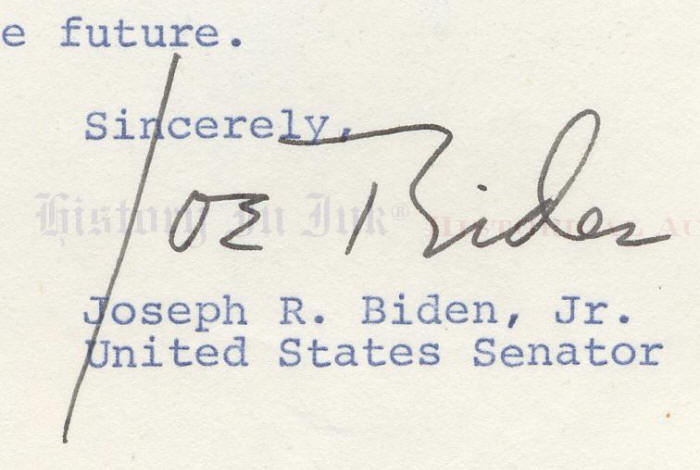 e future.
Sincerely,
Joe Biden
History In Ink® HISTORICAL AU
Joseph R. Biden, Jr.
United States Senator